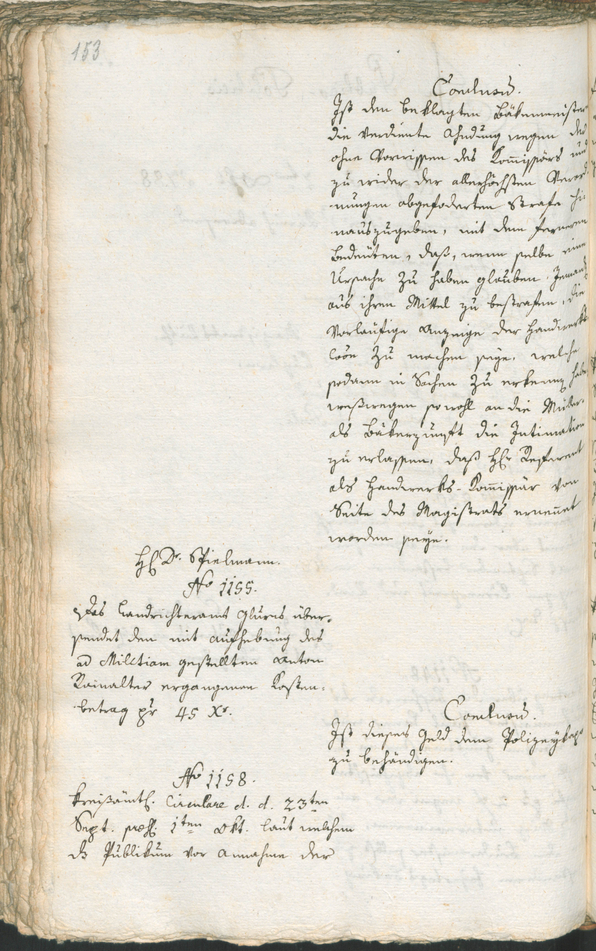 153
Conclusum.
Ist dem beklagten Bäkenmeister
die verdiente Ahndung wegen der
ohne Vorwissen des Kommissärs und
zu wider der allerhöchsten Verord
nungen abgefoderten Strafe hi
nauszugeben, mit dem ferneren
Bedeuten, daß, wenn selbe eine
Ursache zu haben glauben, Jemand
aus ihren Mittel zu bestrafen, die
Vorläufige Anzeige der Handwerks
zu machen seye, welche
sodann in Sachen zu erkennen habe
weßwegen sowohl an die Müller-
als Bäkerzunft die Intimation
zu erlassen, daß Hr. Referent
als Handwerks-Kommissär von
Seite des Magistrats ernennt
worden seye.
H. Dr. Spielmann.
No 1155.
Das Landrichteramt Glurns über-
sendet den mit Aufhebung des
ad Militiam gestellten Anton
Rainalter ergangenen Kosten-
betrag pr 45 Xr.
Conclusum.
Ist dieses Geld dem Polizey
zu behändigen.
No 1158.
Kreisämtl. Circulare d. d. 23ten
Sept. praes. 1ten Okt. laut welchem
ds Publikum vor Annahme der